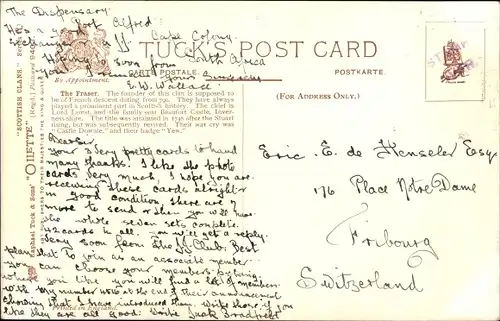 The Dispensary
Port Alfred
Cape Colony
South Africa
Hoping to soon from
you
Yours Sincerely
E.W. Wallace
TUCK'S POST CARD
CARTE POSTALE.
POSTKARTE.
By Appointment.
(FOR ADDRESS ONLY.)
The Fraser. The founder of this clan is supposed to
be of French descent dating from 790. They have always
played a prominent part in Scottish history. The Chief
is Lord Lovat, and the family seat Beaufort Castle, Inver-
ness-shire. The title was attained in 1746 after the Stuart
rising, but was subsequently revived. Their war cry was
"Castle Downie," and their badge "Yew."
"SCOTTISH CLANS."
"OILETTE"
Raphael Tuck & Sons'
Dear Sir
Your 3 very pretty cards to hand
many thanks. I like the photo
cards very much. I hope you are
receiving these cards alright
good condition, there are 7
more to send & then you will have
the whole seven sets complete
cards in all. You will get a reply
very soon from the JJ Club. Best
plan that to join as an associate member
you can choose your members by being
where you like you will find a list of members
with my number now at the end of their announcement
showing that I have introduced them. Write & say if you
like they are all good. Write Jack Bradfield
Printed in England.
Eric. E. de Henseler Esq.
176 Place Notre Dame
Fribourg
Switzerland